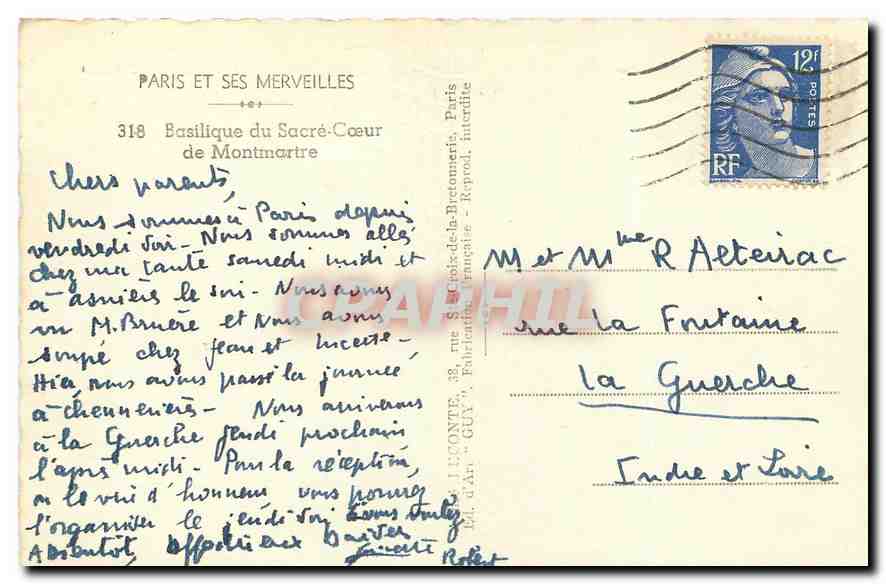 PARIS ET SES MERVEILLES
318 Basilique du Sacré-Cœur
de Montmartre
Chers parents,
Nous sommes à Paris depuis
vendredi soir - Nous sommes allés
chez ma tante samedi midi et
à asnières le soir - Nous avons
vu M. Bruère et Nous avons
soupé chez Jean et
Hier, nous avons passé la journée
à chennevières - Nous arriverons
à la Guerche jeudi prochain
l'après midi - Pour la réception,
ou le vin d'honneur vous pouvez
l'organiser le jeudi soir si vous voulez
A bientôt, affectueux baisers
Robert
LECONTE, 38, rue Ste-Croix-de-la-Bretonnerie, Paris
Ed. d'Art "GUY". Fabrication Française - Reprod. interdite
12F
POSTES
RF
M et Mme R Alteirac
rue La Fontaine
La Guerche
Indre et Loire
CPAPHIL